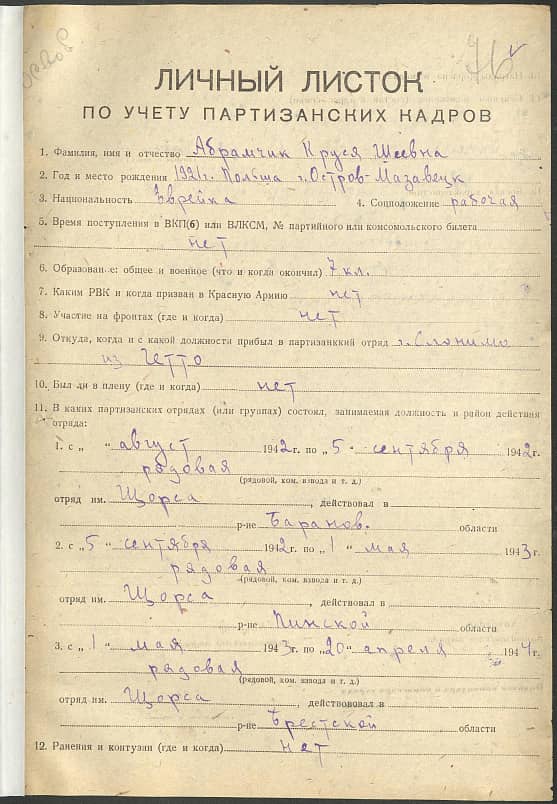 76
ЛИЧНЫЙ ЛИСТОК
ПО УЧЕТУ ПАРТИЗАНСКИХ КАДРОВ
1. Фамилия, имя и отчество Абрамчик Круся Шеевна
2. Год и место рождения 1921г. Польша г. Остров-Мазавецк
3. Национальность Еврейка 4. Соцположение рабочая
5. Время поступления в ВКП(б) или ВЛКСМ, № партийного или комсомольского билета
нет
6. Образование: общее и военное (что и когда окончил) 7 кл.
7. Каким РВК и когда призван в Красную Армию нет
8. Участие на фронтах (где и когда) нет
9. Откуда, когда и с какой должности прибыл в партизанкий отряд г. Слонимо
из Гетто
10. Был ли в плену (где и когда) нет
11. В каких партизанских отрядах (или группах) состоял, занимаемая должность и район действия
отряда:
1. с „ " август 1942г. по „5" сентября 1942г.
рядовая
(рядовой, ком. взвода и т. д.)
отряд им. Щорса, действовал в
р-не Баранов. области
2. с „5" сентября 1942г. по „1" мая 1943г.
рядовая
(рядовой, ком. взвода и т. д.)
отряд им. Щорса, действовал в
р-не Пинской области
3. с „1" мая 1943г. по „20" апреля 1944г.
рядовая
(рядовой, ком. взвода и т. д.)
отряд им. Щорса, действовал в
р-не Брестской области
12. Ранения и контузии (где и когда) нет